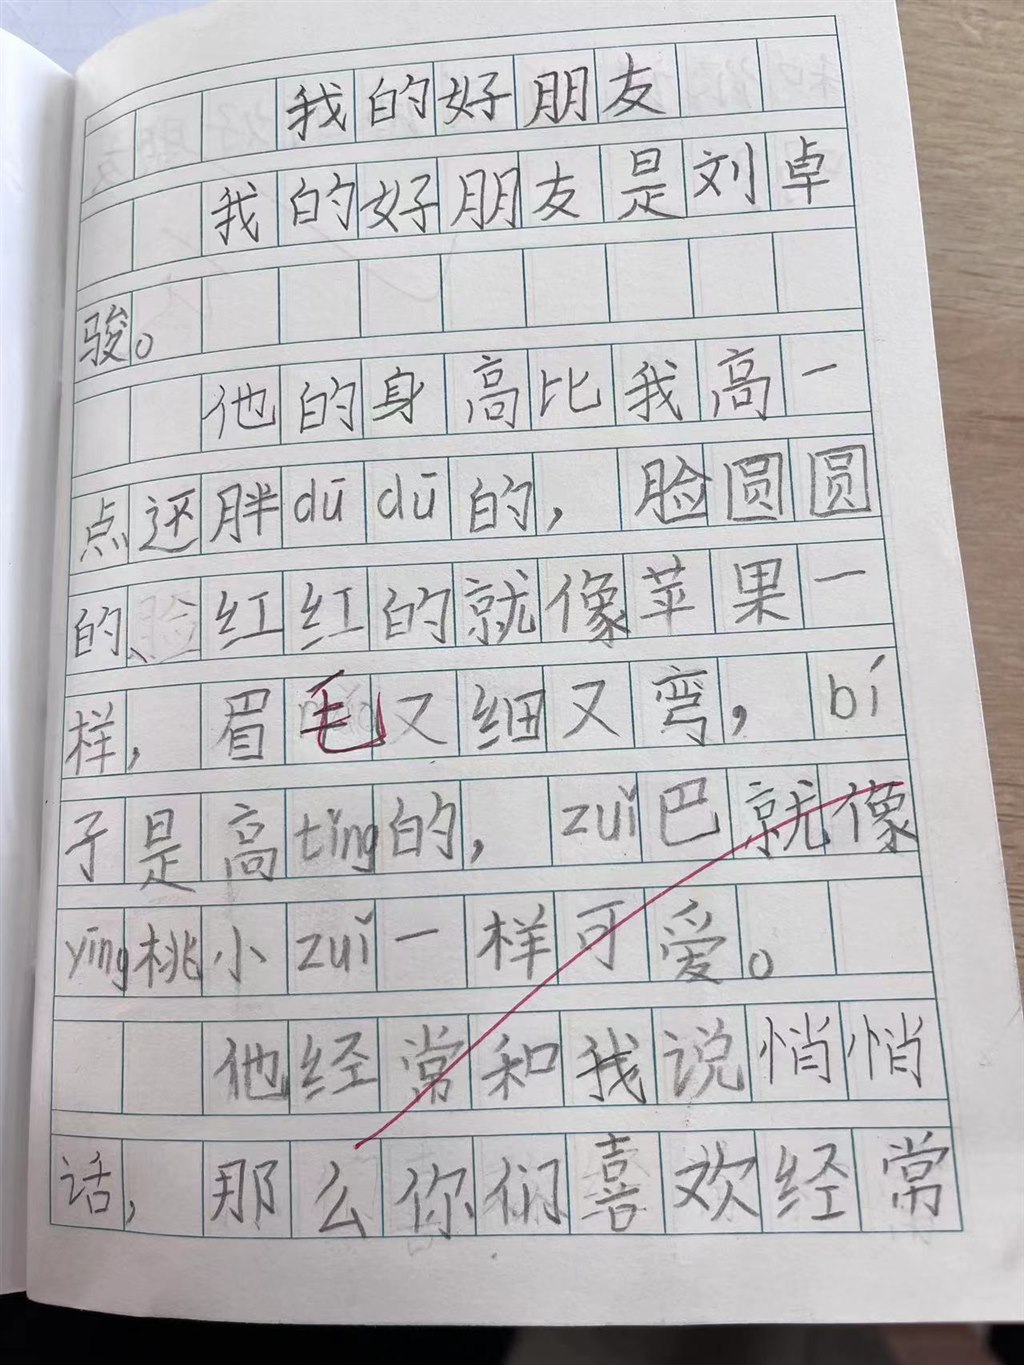 我的好朋友
我的好朋友是刘卓
骏。
他的身高比我高一
点还胖dū dū的，脸圆圆
的、红红的就像苹果一
样，眉毛又细又弯，bí
子是高tǐng的，zuǐ巴就像
yīng桃小zuǐ一样可爱。
他经常和我说悄悄
话，那么你们喜欢经常